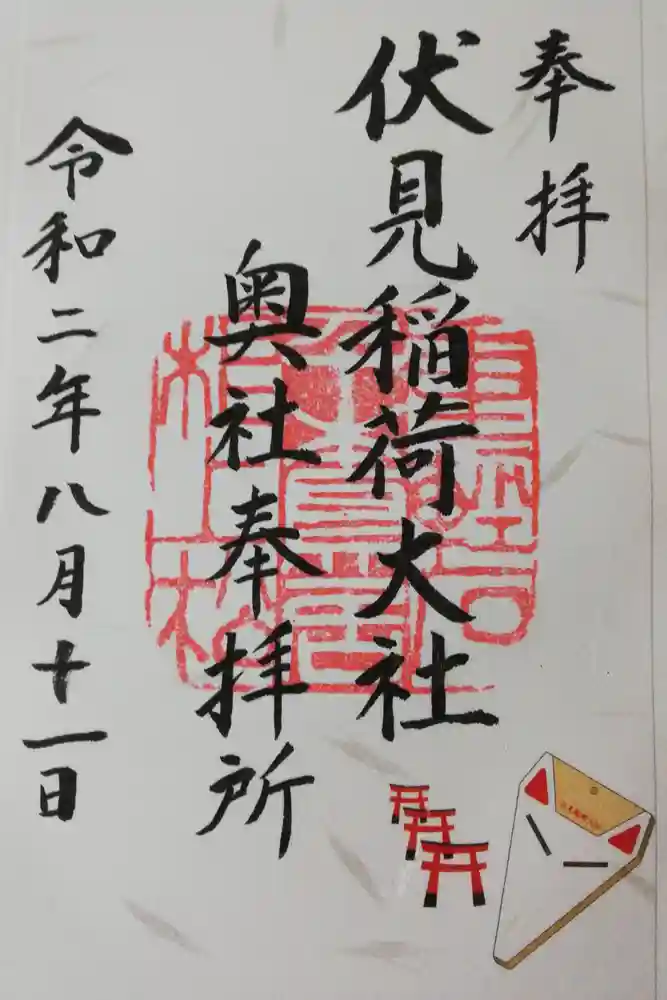 奉拝
伏見稲荷大社
奥社奉拝所
令和二年八月十一日